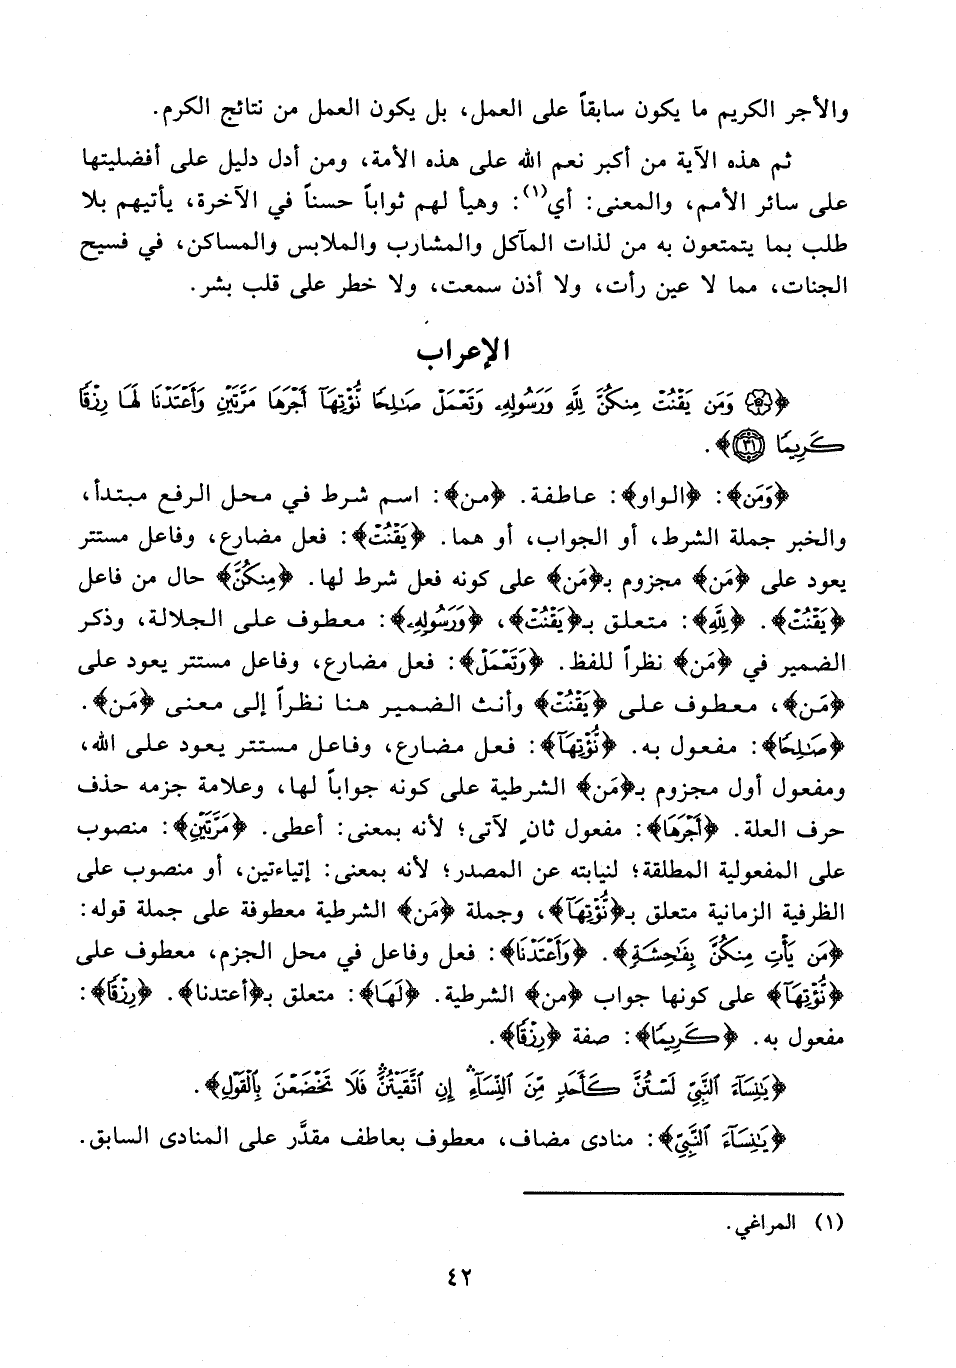 والأجر الكريم ما يكون سابقاً على العمل، بل يكون العمل من نتائج الكرم.
ثم هذه الآية من أكبر نعم الله على هذه الأمة، ومن أدل دليل على أفضليتها
على سائر الأمم، والمعنى: أي(١): وهيأ لهم ثواباً حسناً في الآخرة، يأتيهم بلا
طلب بما يتمتعون به من لذات المآكل والمشارب والملابس والمساكن، في فسيح
الجنات، مما لا عين رأت، ولا أذن سمعت، ولا خطر على قلب بشر.
الإعراب
﴿۞ وَمَن يَقْنُتْ مِنكُنَّ لِلَّهِ وَرَسُولِهِۦ وَتَعْمَلْ صَٰلِحًا نُّؤْتِهَآ أَجْرَهَا مَرَّتَيْنِ وَأَعْتَدْنَا لَهَا رِزْقًا
كَرِيمًا ٣١﴾.
﴿وَمَن﴾: ﴿الواو﴾: عاطفة. ﴿من﴾: اسم شرط في محل الرفع مبتدأ،
والخبر جملة الشرط، أو الجواب، أو هما. ﴿يَقْنُتْ﴾: فعل مضارع، وفاعل مستتر
يعود على ﴿مَن﴾ مجزوم بـ﴿مَن﴾ على كونه فعل شرط لها. ﴿مِنكُنَّ﴾ حال من فاعل
﴿يَقْنُتْ﴾. ﴿لِلَّهِ﴾: متعلق بـ﴿يَقْنُتْ﴾، ﴿وَرَسُولِهِۦ﴾: معطوف على الجلالة، وذكر
الضمير في ﴿مَن﴾ نظراً للفظ. ﴿وَتَعْمَلْ﴾: فعل مضارع، وفاعل مستتر يعود على
﴿مَن﴾، معطوف على ﴿يَقْنُتْ﴾ وأنث الضمير هنا نظراً إلى معنى ﴿مَن﴾.
﴿صَٰلِحًا﴾: مفعول به. ﴿نُّؤْتِهَآ﴾: فعل مضارع، وفاعل مستتر يعود على الله،
ومفعول أول مجزوم بـ﴿مَن﴾ الشرطية على كونه جواباً لها، وعلامة جزمه حذف
حرف العلة. ﴿أَجْرَهَا﴾: مفعول ثانٍ لآتى؛ لأنه بمعنى: أعطى. ﴿مَرَّتَيْنِ﴾: منصوب
على المفعولية المطلقة؛ لنيابته عن المصدر؛ لأنه بمعنى: إتياءتين، أو منصوب على
الظرفية الزمانية متعلق بـ﴿نُّؤْتِهَآ﴾، وجملة ﴿مَن﴾ الشرطية معطوفة على جملة قوله:
﴿مَن يَأْتِ مِنكُنَّ بِفَٰحِشَةٍ﴾. ﴿وَأَعْتَدْنَا﴾: فعل وفاعل في محل الجزم، معطوف على
﴿نُّؤْتِهَآ﴾ على كونها جواب ﴿من﴾ الشرطية. ﴿لَهَا﴾: متعلق بـ﴿أعتدنا﴾. ﴿رِزْقًا﴾:
مفعول به. ﴿كَرِيمًا﴾: صفة ﴿رِزْقًا﴾.
﴿يَٰنِسَآءَ ٱلنَّبِيِّ لَسْتُنَّ كَأَحَدٍ مِّنَ ٱلنِّسَآءِۚ إِنِ ٱتَّقَيْتُنَّۚ فَلَا تَخْضَعْنَ بِٱلْقَوْلِ﴾.
﴿يَٰنِسَآءَ ٱلنَّبِيِّ﴾: منادى مضاف، معطوف بعاطف مقدَّر على المنادى السابق.
(١) المراغي.
٤٢